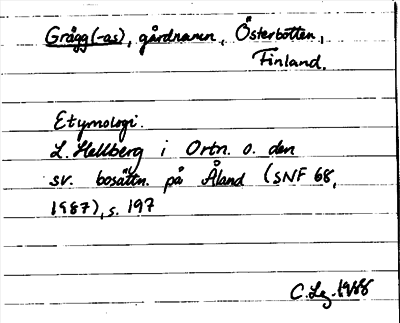 Grägg(-as), gårdnamn, Österbotten,
Finland.
Etymologi.
L. Hellberg i Ortn. o. den
sv. bosättn. på Åland (SNF 68,
1987), s. 197
C. Lg. 1988